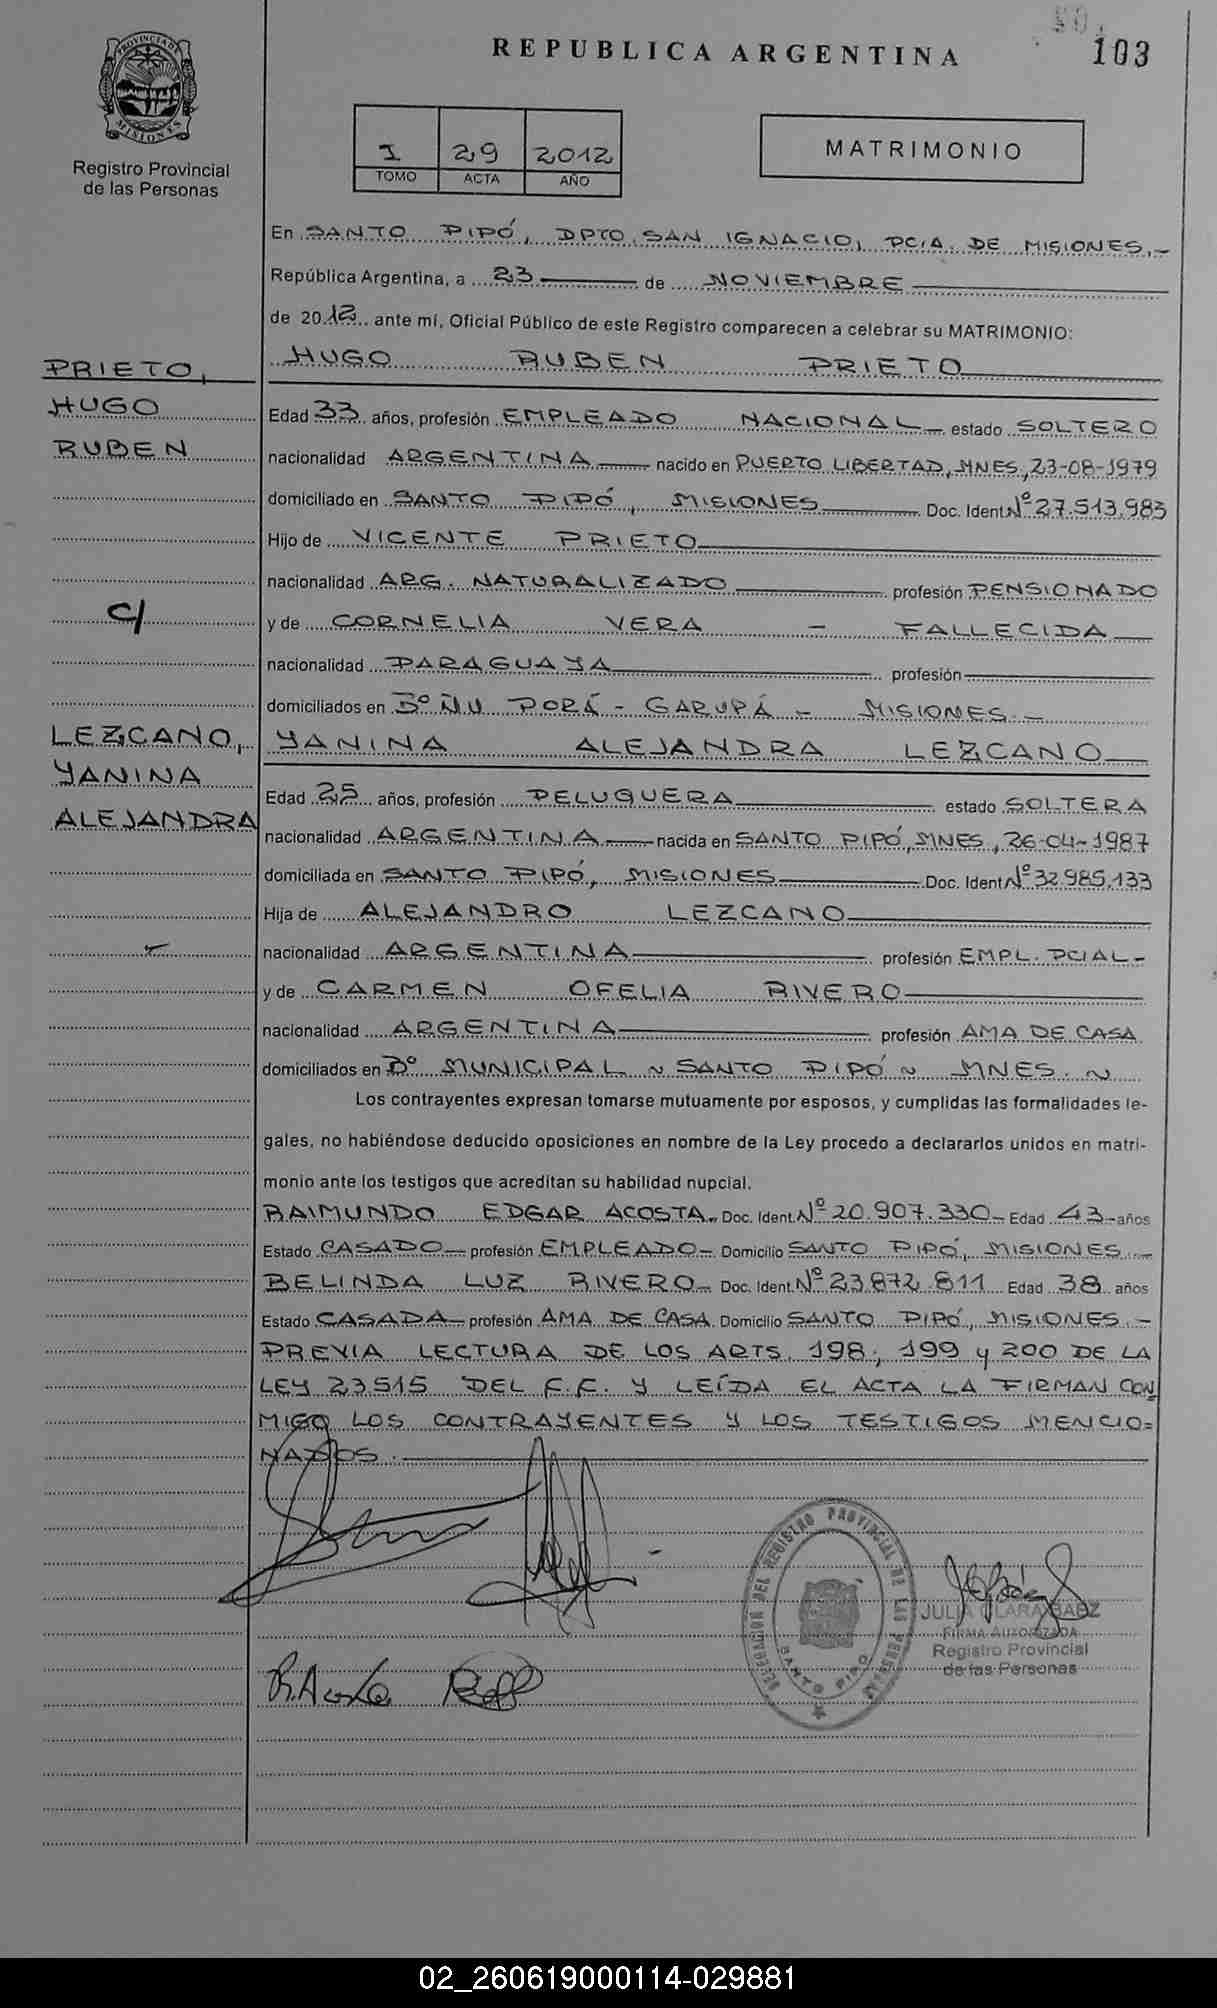 REPUBLICA ARGENTINA
103
PROVINCIA DE
MISIONES
Registro Provincial
de las Personas
I 29 2012
TOMO ACTA AÑO
MATRIMONIO
En SANTO PIPÓ, DPTO. SAN IGNACIO, PCIA. DE MISIONES.-
República Argentina, a 23 de NOVIEMBRE
de 2012 ante mí, Oficial Público de este Registro comparecen a celebrar su MATRIMONIO:
HUGO RUBEN PRIETO
PRIETO,
HUGO
RUBEN
C/
LEZCANO,
YANINA
ALEJANDRA
Edad 33 años, profesión EMPLEADO NACIONAL estado SOLTERO
nacionalidad ARGENTINA nacido en PUERTO LIBERTAD, MNES, 23-08-1979
domiciliado en SANTO PIPÓ, MISIONES Doc. Ident. Nº 27.513.983
Hijo de VICENTE PRIETO
nacionalidad ARG. NATURALIZADO profesión PENSIONADO
y de CORNELIA VERA - FALLECIDA
nacionalidad PARAGUAYA profesión
domiciliados en Bº ÑU PORÁ - GARUPÁ - MISIONES.-
YANINA ALEJANDRA LEZCANO
Edad 25 años, profesión PELUQUERA estado SOLTERA
nacionalidad ARGENTINA nacida en SANTO PIPÓ, MNES, 26-04-1987
domiciliada en SANTO PIPÓ, MISIONES Doc. Ident. Nº 32.985.133
Hija de ALEJANDRO LEZCANO
nacionalidad ARGENTINA profesión EMPL. PCIAL-
y de CARMEN OFELIA RIVERO
nacionalidad ARGENTINA profesión AMA DE CASA
domiciliados en Bº MUNICIPAL ~ SANTO PIPÓ ~ MNES. ~
Los contrayentes expresan tomarse mutuamente por esposos, y cumplidas las formalidades le-
gales, no habiéndose deducido oposiciones en nombre de la Ley procedo a declararlos unidos en matri-
monio ante los testigos que acreditan su habilidad nupcial.
RAIMUNDO EDGAR ACOSTA Doc. Ident. Nº 20.907.330 Edad 43 años
Estado CASADO profesión EMPLEADO Domicilio SANTO PIPÓ, MISIONES
BELINDA LUZ RIVERO Doc. Ident. Nº 23.872.811 Edad 38 años
Estado CASADA profesión AMA DE CASA Domicilio SANTO PIPÓ, MISIONES.-
PREVIA LECTURA DE LOS ARTS. 198, 199 y 200 DE LA
LEY 23515 DEL C.C. Y LEÍDA EL ACTA LA FIRMAN CON
MIGO LOS CONTRAYENTES Y LOS TESTIGOS MENCIO=
NADOS.
R. Acosta
DELEGACION DEL REGISTRO PROVINCIAL DE LAS PERSONAS
SANTO PIPO
JULIA CLARA BAEZ
FIRMA AUTORIZADA
Registro Provincial
de las Personas
02_260619000114-029881